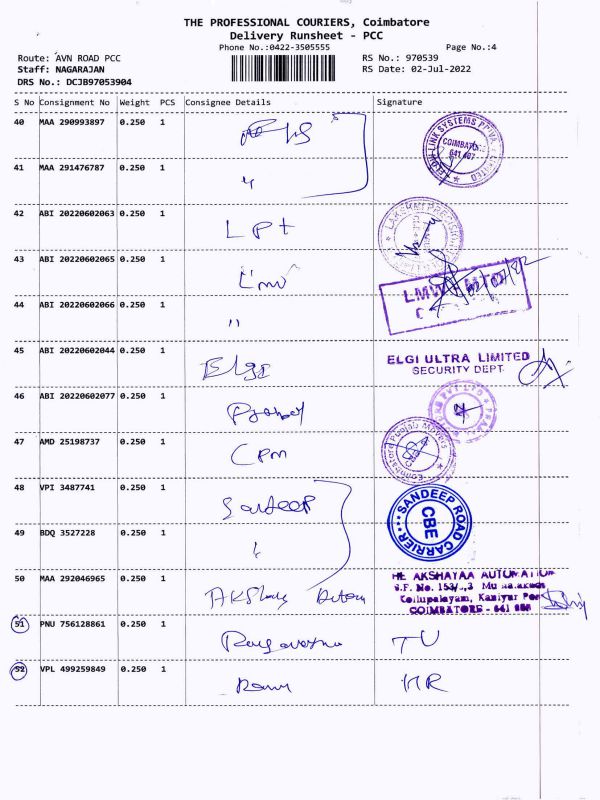 THE PROFESSIONAL COURIERS, Coimbatore
Delivery Runsheet - PCC
Phone No.:0422-3505555
Page No.:4
Route: AVN ROAD PCC
RS No.: 970539
Staff: NAGARAJAN
RS Date: 02-Jul-2022
DRS No.: DCJB97053904
S No Consignment No Weight PCS Consignee Details Signature
40 MAA 290993897 0.250 1
COIMBATORE
41 MAA 291476787 0.250 1 "
42 ABI 20220602063 0.250 1 LPt
43 ABI 20220602065 0.250 1 Lmw
44 ABI 20220602066 0.250 1 "
45 ABI 20220602044 0.250 1 Elgi
ELGI ULTRA LIMITED
SECURITY DEPT.
46 ABI 20220602077 0.250 1
47 AMD 25198737 0.250 1 CPM
Coimbatore Punjab Movers
48 VPI 3487741 0.250 1 Sandeep
SANDEEP ROAD CARRIER
CBE
49 BDQ 3527228 0.250 1 "
50 MAA 292046965 0.250 1
AKSHAYAA AUTOMATION
Kollupalayam, Kaniyur Post
COIMBATORE - 641
51 PNU 756128861 0.250 1
52 VPL 499259849 0.250 1